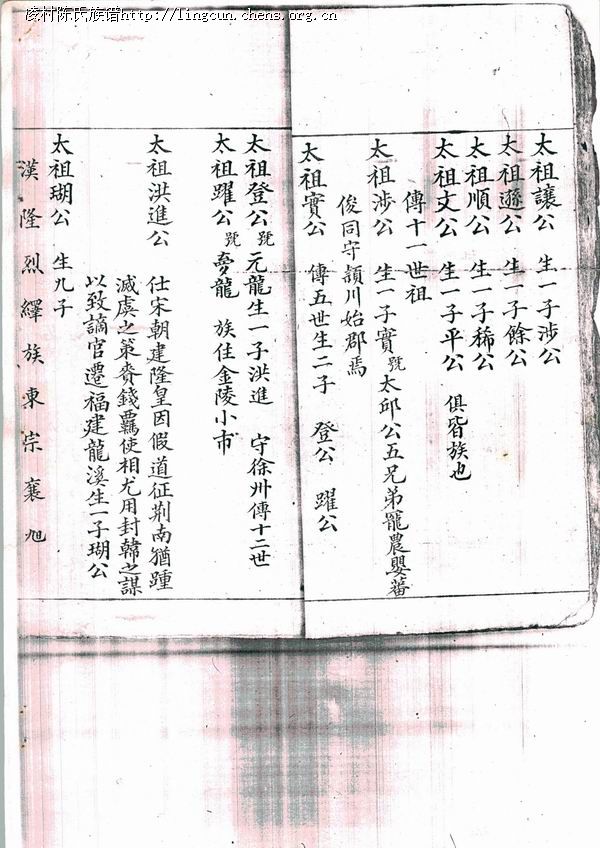 凌村陈氏族谱http://lingcun.chens.org.cn
太祖讓公 生一子涉公
太祖遜公 生一子餘公
太祖順公 生一子稀公
太祖文公 生一子平公 俱皆族也
傳十一世祖
太祖涉公 生一子實號太邱公五兄弟寵農嬰蕃
俊同守頴川始郡焉
太祖實公 傳五世生二子 登公 躍公
太祖登公號元龍生一子洪進 守徐州傳十二世
太祖躍公號夢龍 族住金陵小市
太祖洪進公 仕宋朝建隆皇因假道征荆南猶踵
滅虞之策賚錢覊使相尤用封韓之謀
以致謫官遷福建龍溪生一子瑚公
太祖瑚公 生九子
漢隆烈繹族東宗襄旭